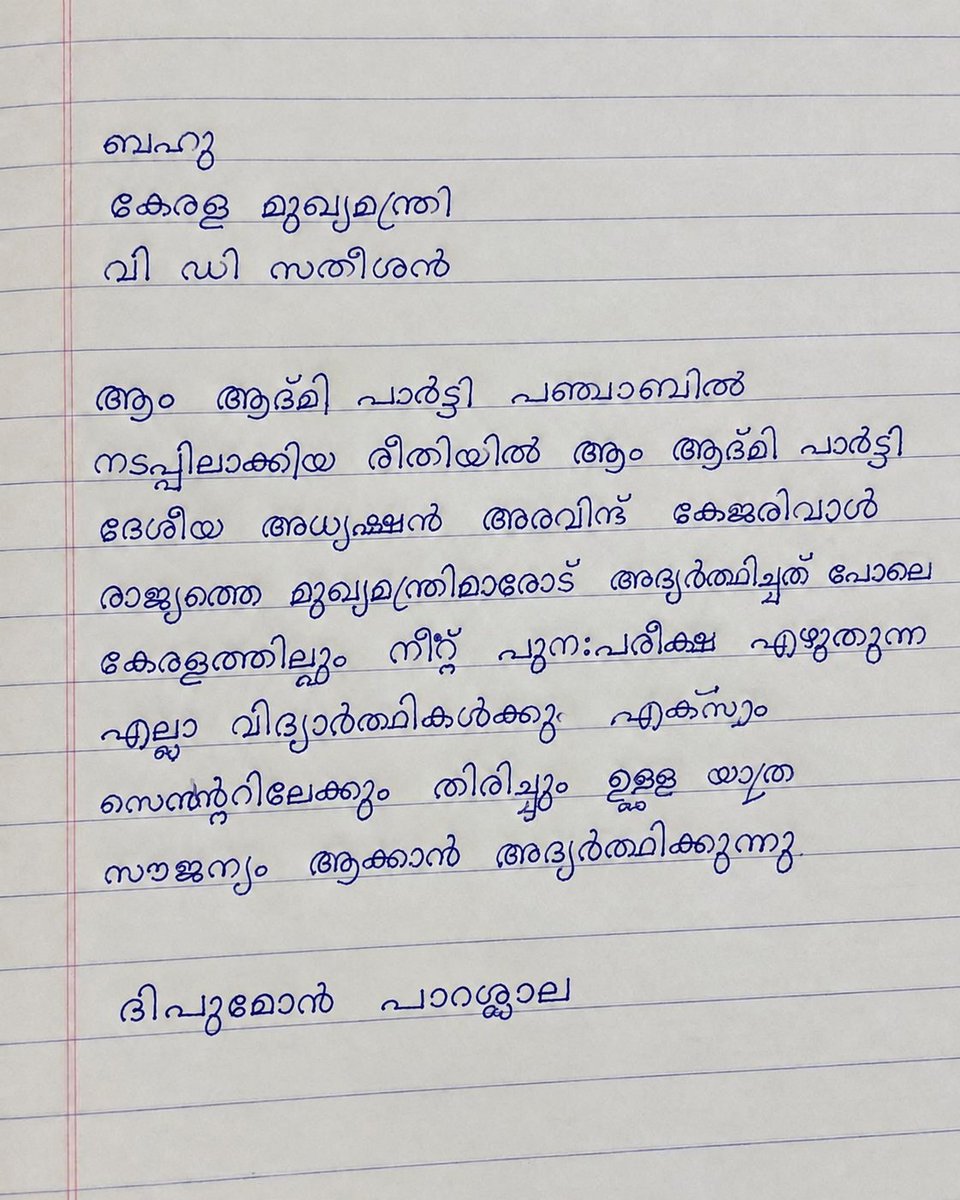 ബഹു
കേരള മുഖ്യമന്ത്രി
വി ഡി സതീശൻ
ആം ആദ്മി പാർട്ടി പഞ്ചാബിൽ
നടപ്പിലാക്കിയ രീതിയിൽ ആം ആദ്മി പാർട്ടി
ദേശീയ അധ്യക്ഷൻ അരവിന്ദ് കേജരിവാൾ
രാജ്യത്തെ മുഖ്യമന്ത്രിമാരോട് അദ്യർത്ഥിച്ചത് പോലെ
കേരളത്തില്ലും നീറ്റ് പുനഃപരീക്ഷ എഴുതുന്ന
എല്ലാ വിദ്യാർത്ഥികൾക്കു എക്സാം
സെൻ്ററിലേക്കും തിരിച്ചും ഉള്ള യാത്ര
സൗജന്യം ആക്കാൻ അദ്യർത്ഥിക്കുന്നു.
ദിപുമോൻ പാറശ്ശാല